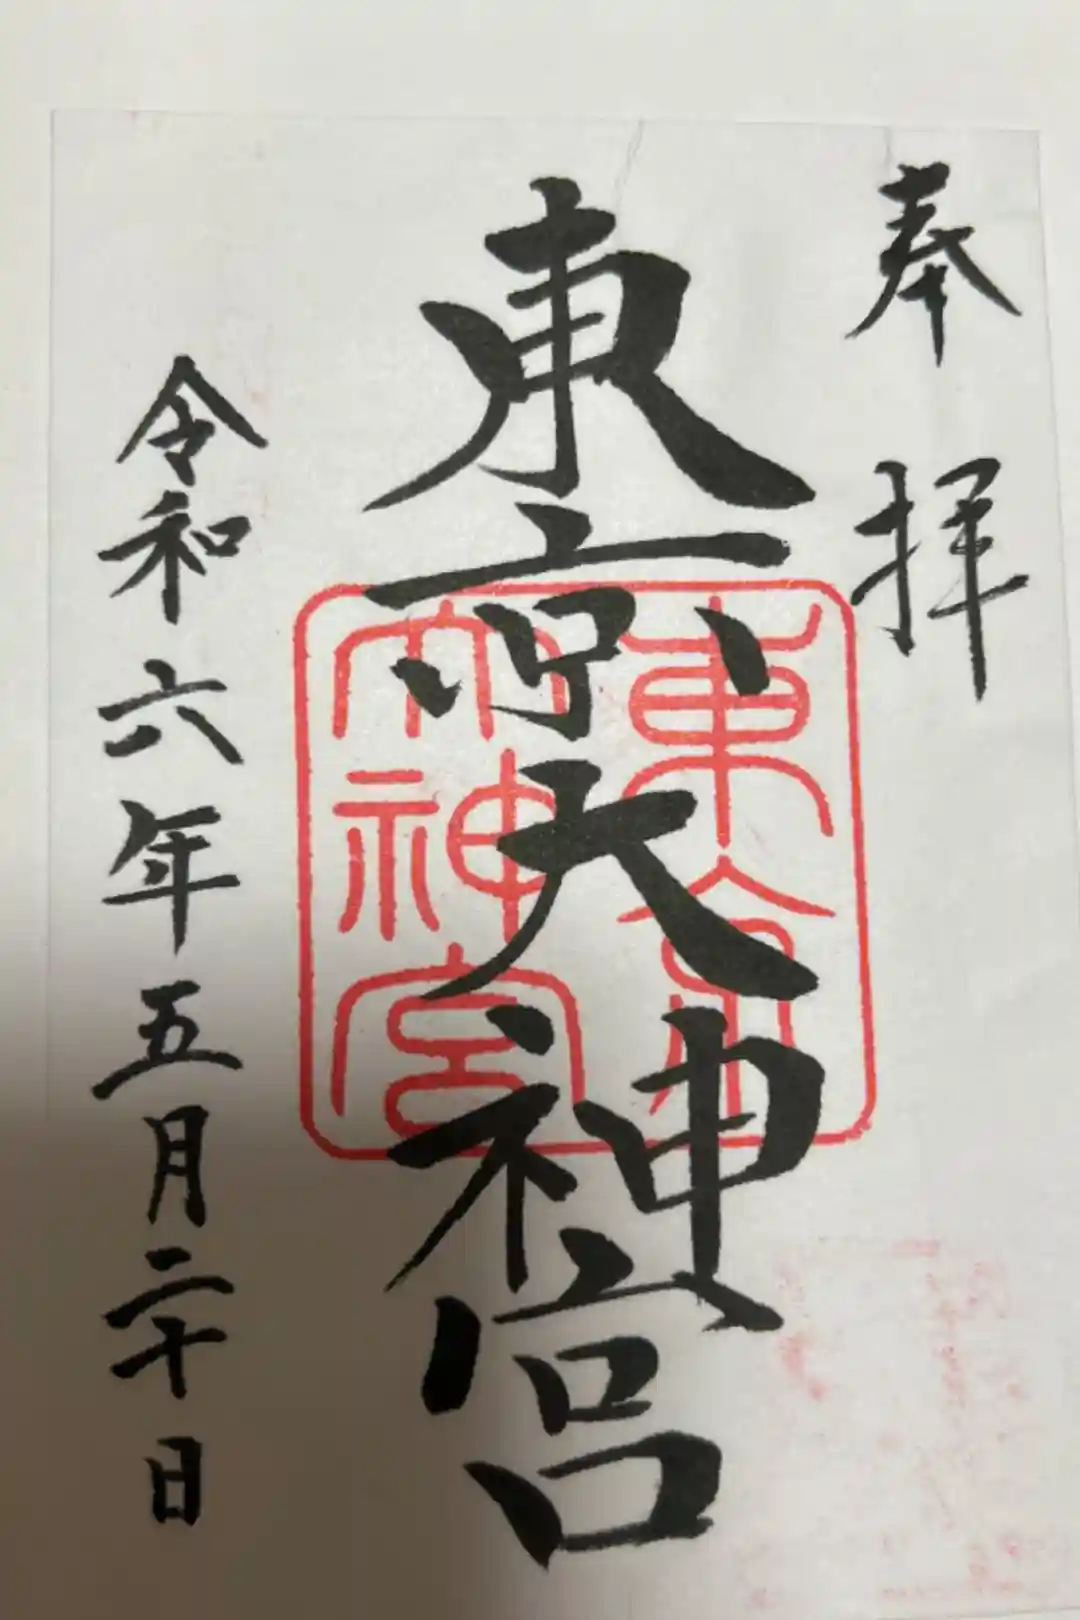 奉拝
東京大神宮
東京
大神宮
令和六年五月二十日